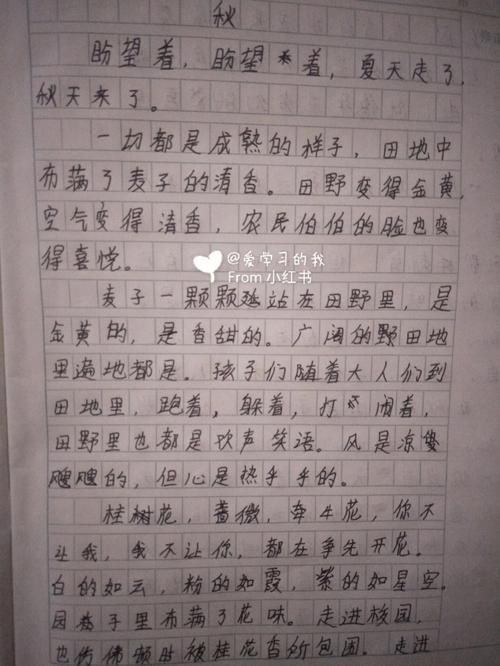 秋
盼望着，盼望着，夏天走了，
秋天来了。
一切都是成熟的样子，田地中
布满了麦子的清香。田野变得金黄，
空气变得清香，农民伯伯的脸也变
得喜悦。
@爱学习的我
From 小红书
麦子一颗颗站在田野里，是
金黄的，是香甜的。广阔的野田地
里遍地都是。孩子们随着大人们到
田地里，跑着，躲着，打闹着，
田野里也都是欢声笑语。风是凉
飕飕的，但心是热乎乎的。
桂树花，蔷薇，牵牛花，你不
让我，我不让你，都在争先开花。
白的如云，粉的如霞，紫的如星空。
园子里布满了花味。走进校园，
也仿佛顿时被桂花香所包围。走进